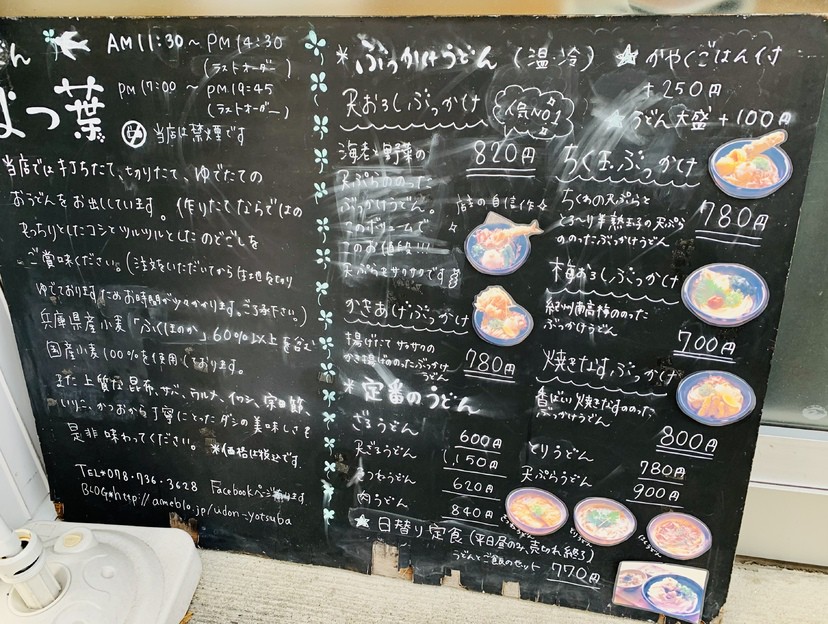 ん
よつ葉
AM 11:30 ～ PM 14:30
(ラストオーダー)
PM 17:00 ～ PM 19:45
(ラストオーダー)
当店は禁煙です
当店では打ちたて、切りたて、ゆでたての
おうどんをお出ししています。作りたてならではの
もっちりとしたコシとツルツルとしたのどごしを
ご賞味ください。(注文をいただいてから生地を切り
ゆでておりますためお時間が少々かかります。ご了承下さい。)
兵庫県産小麦「ふくほのか」60%以上を含む
国産小麦100%を使用しております。
また上質な昆布、サバ、ウルメ、イワシ、宗田節、
いりこ、かつおから丁寧にとったダシの美味しさを
是非味わってください。 ※価格は税込です
TEL 078-736-3628
BLOG http://ameblo.jp/udon-yotsuba
Facebookページ あります
* ぶっかけうどん (温・冷)
☆ かやくごはん付
+250円
うどん大盛 +100円
天おろしぶっかけ
人気NO.1
820円
海老と野菜の
天ぷらののった
ぶっかけうどん。
このボリュームで
このお値段!!!
天ぷらもサクサクです
店主の自信作
かきあげぶっかけ
揚げたてサクサクの
かき揚げののったぶっかけ
うどん
780円
ちくたまぶっかけ
ちくわの天ぷらと
とろ～り半熟玉子の天ぷら
ののったぶっかけうどん
780円
梅おろしぶっかけ
紀州南高梅ののった
ぶっかけうどん
700円
焼きなすぶっかけ
香ばしい焼きなすののった
ぶっかけうどん
800円
* 定番のうどん
ざるうどん 600円
天ざるうどん 1,150円
きつねうどん 620円
肉うどん 840円
とりうどん 780円
天ぷらうどん 900円
☆ 日替り定食 (平日昼のみ、売切れ終了)
うどんとご飯のセット 770円